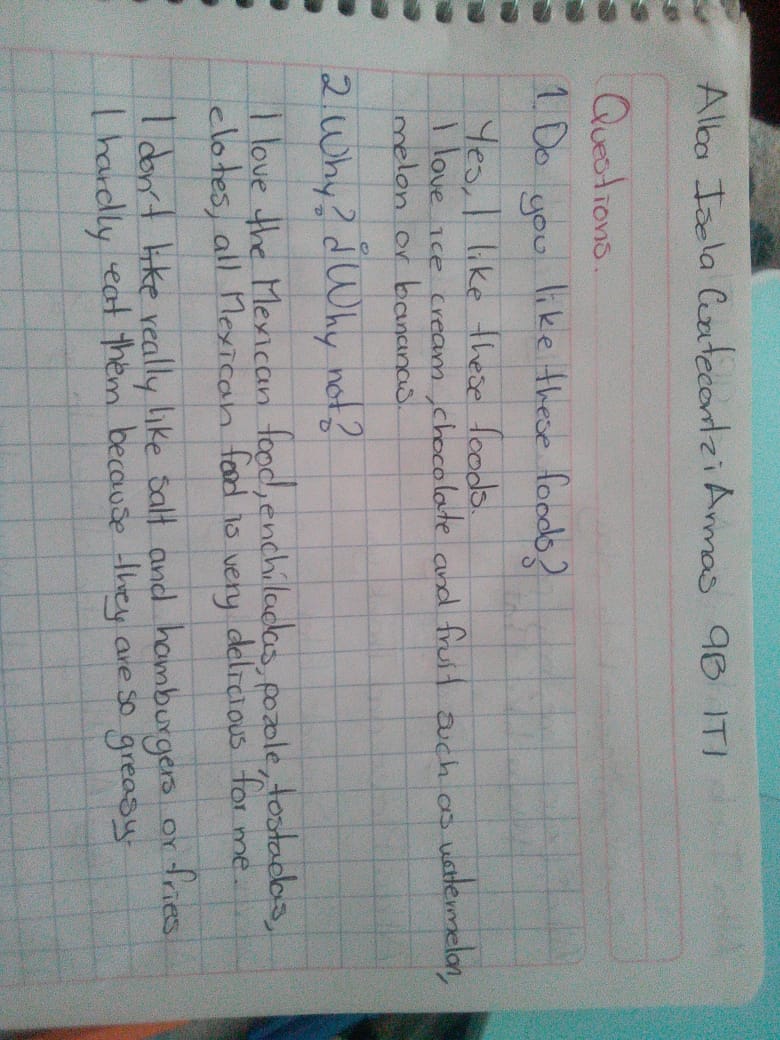 Alba Isela Cuatecontzi Armas 9B ITI
Questions.
1. Do you like these foods?
Yes, I like these foods.
I love ice cream, chocolate and fruit such as watermelon,
melon or bananas.
2. Why? ¿Why not?
I love the Mexican food, enchiladas, pozole, tostadas,
elotes, all Mexican food is very delicious for me.
I don't like really like salt and hamburgers or fries
I hardly eat them because they are so greasy.